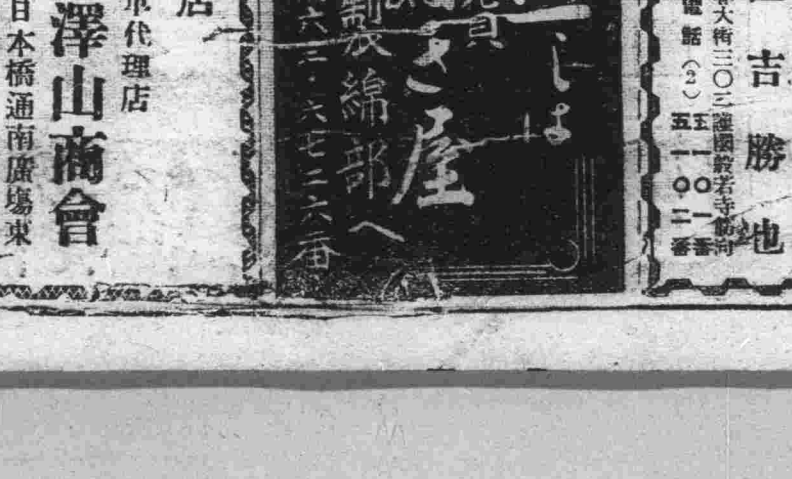 吉勝地
大街三〇三護國般若寺筋向
電話(2)五一〇一番
五一〇二番
しは
さ屋
製綿部へ
六七二六番
店
代理店
澤山商會
日本橋通南廣場東